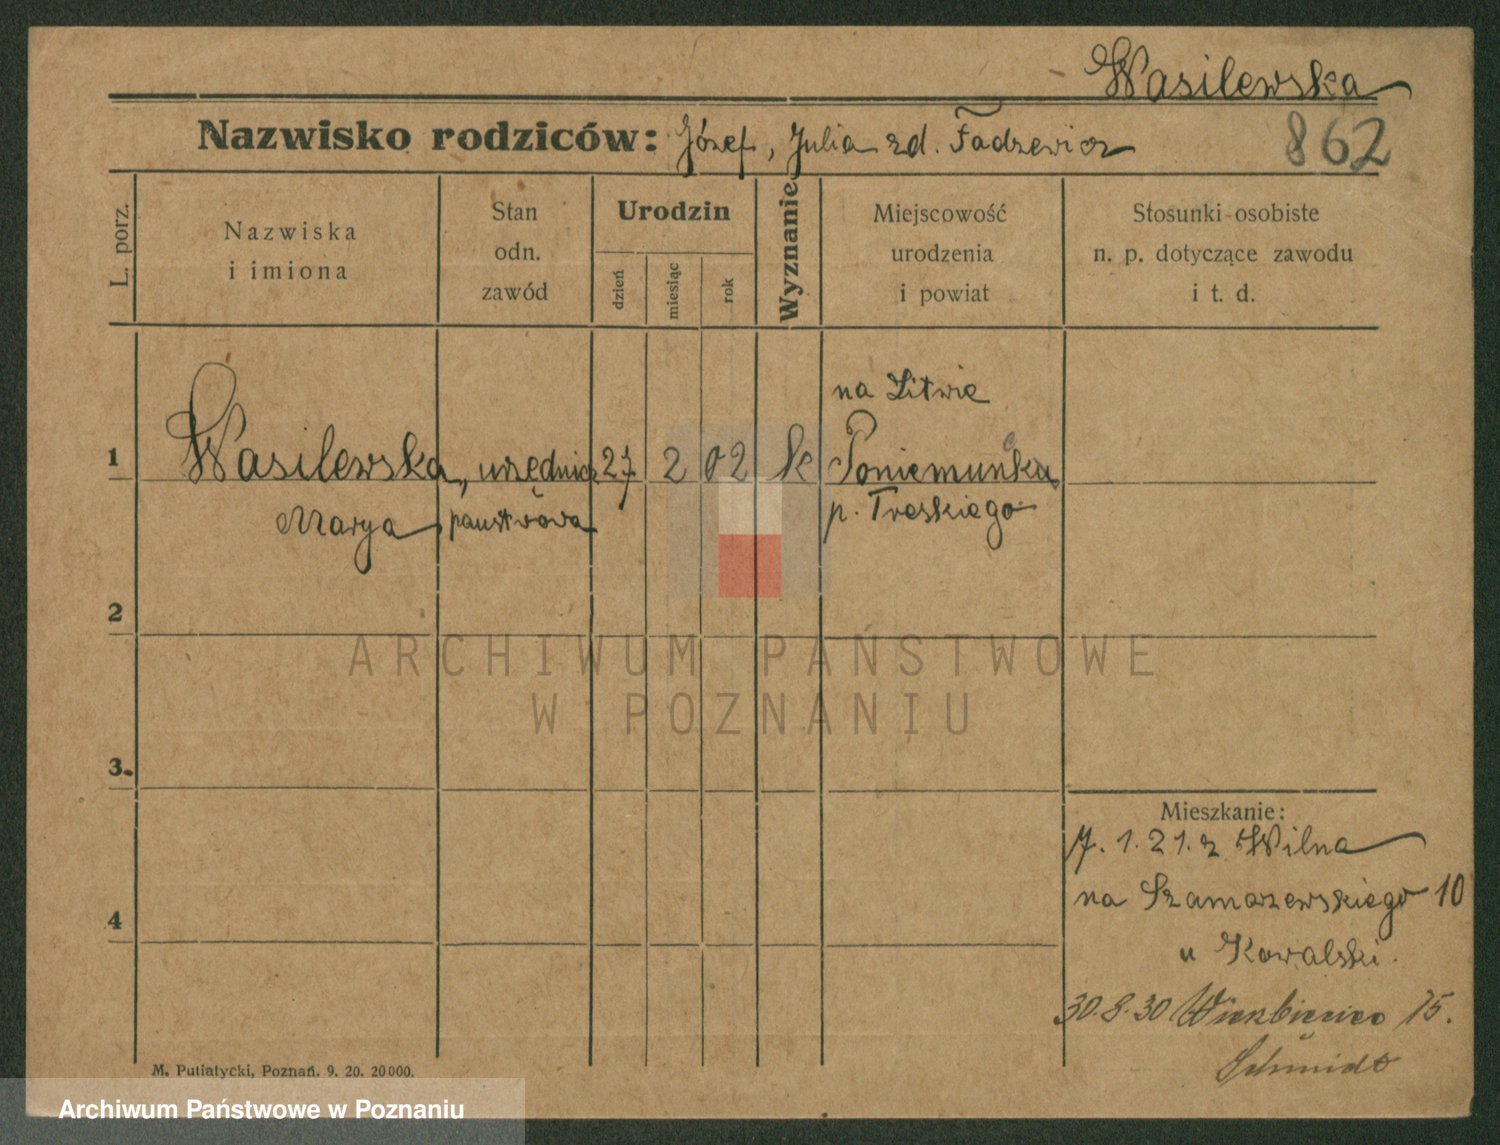 Wasilewska
Nazwisko rodziców: Józef, Julia zd. Fadzewicz
862
L. porz.
Nazwiska
i imiona
Stan
odn.
zawód
Urodzin
dzień
miesiąc
rok
Wyznanie
Miejscowość
urodzenia
i powiat
Stosunki osobiste
n. p. dotyczące zawodu
i t. d.
na Litwie
1 Wasilewska, urzędnicz 27 2 02 k Poniemunka
Marya państwowa p. Treskiego
2
3.
4
Mieszkanie:
7. 1. 21. z Wilna
na Szamarzewskiego 10
u Kowalski.
30.8.30 15.
Schmidt
M. Putiatycki, Poznań. 9. 20. 20000.
ARCHIWUM PAŃSTWOWE
W POZNANIU
Archiwum Państwowe w Poznaniu